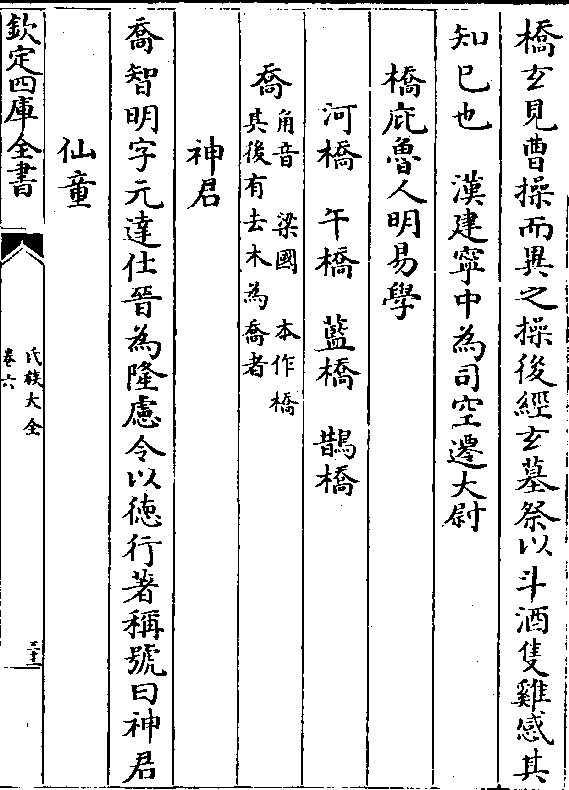 橋玄見曹操而異之操後經玄墓祭以斗酒隻雞感其
知已也　漢建寧中為司空遷大尉
橋庇魯人明易學
河橋　午橋　藍橋　鵲橋
喬
角音　梁國　本作橋
其後有去木為喬者
神君
喬智明字元達仕晉為隆慮令以徳行著稱號曰神君
仙童
欽定四庫全書
氏族大全
卷六